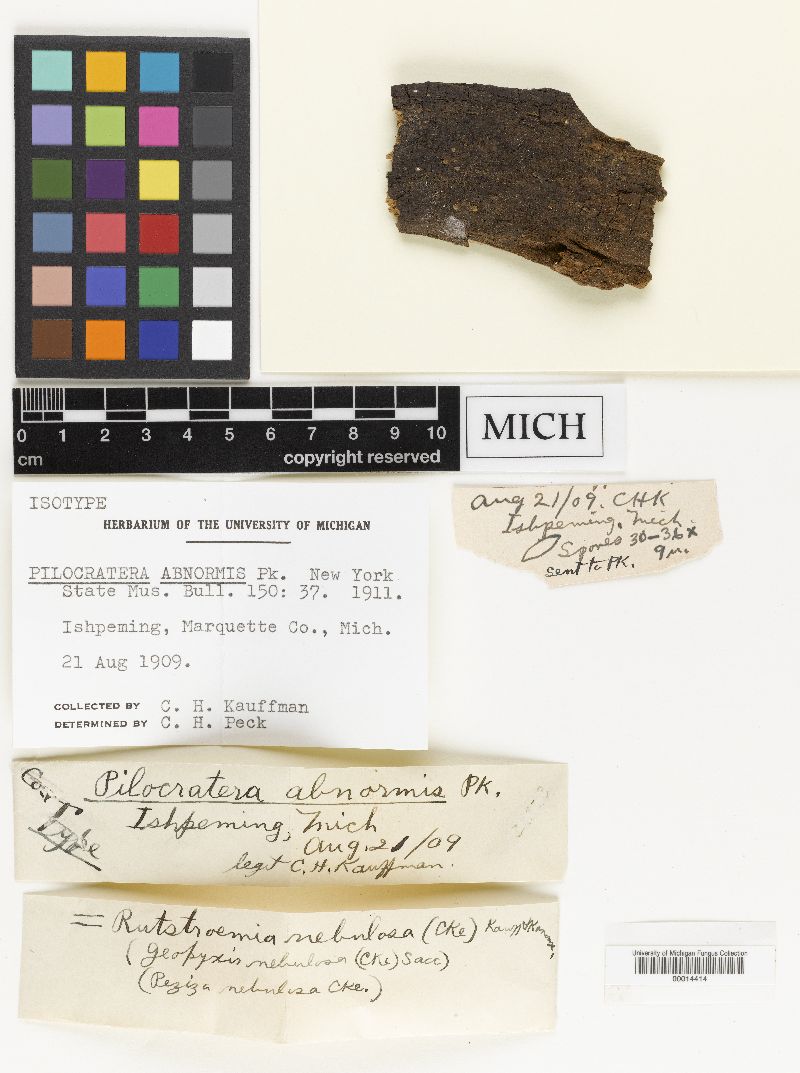 0 1 2 3 4 5 6 7 8 9 10
cm copyright reserved
MICH
ISOTYPE
HERBARIUM OF THE UNIVERSITY OF MICHIGAN
PILOCRATERA ABNORMIS Pk. New York
State Mus. Bull. 150: 37. 1911.
Ishpeming, Marquette Co., Mich.
21 Aug 1909.
COLLECTED BY C. H. Kauffman
DETERMINED BY C. H. Peck
Aug 21/09. CHK
Ishpeming, Mich.
Spores 30-36 x
9 µ.
sent to PK.
Pilocratera abnormis PK.
Type
Ishpeming, Mich
Aug. 21/09
legit C. H. Kauffman.
= Rutstroemia nebulosa (Cke)
(Geopyxis nebulosa (Cke) Sacc)
(Peziza nebulosa Cke.)
University of Michigan Fungus Collection
00014414